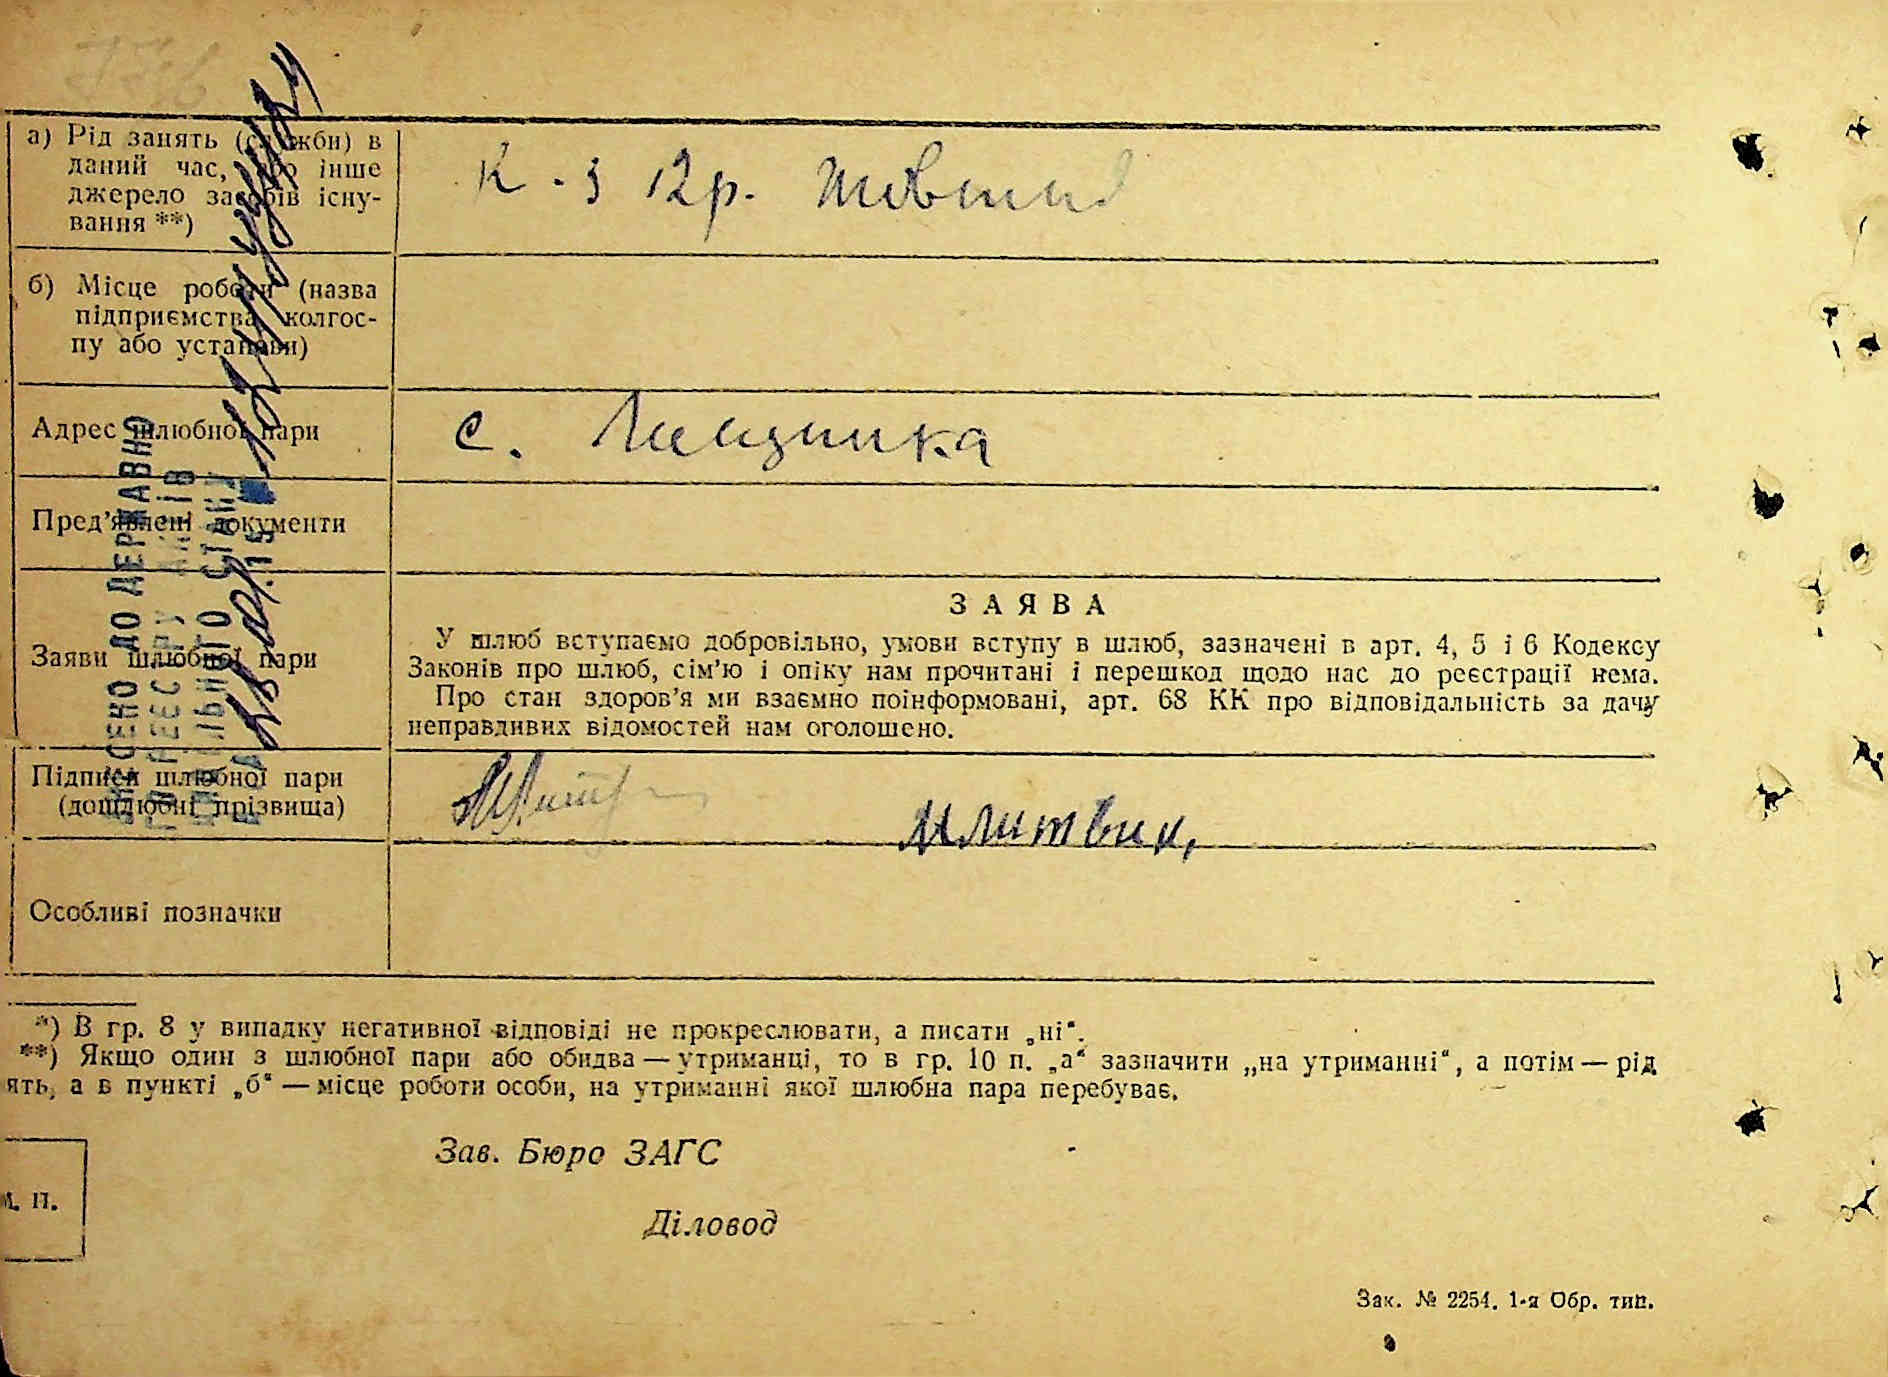 а) Рід занять (служби) в
даний час, або інше
джерело засобів існу-
вання **)
К-з 12 р. Жовтня
б) Місце роботи (назва
підприємства, колгос-
пу або установи)
Адрес шлюбної пари
с.
Пред'явлені документи
Заяви шлюбної пари
ЗАЯВА
У шлюб вступаємо добровільно, умови вступу в шлюб, зазначені в арт. 4, 5 і 6 Кодексу
Законів про шлюб, сім'ю і опіку нам прочитані і перешкод щодо нас до реєстрації нема.
Про стан здоров'я ми взаємно поінформовані, арт. 68 КК про відповідальність за дачу
неправдивих відомостей нам оголошено.
Підписи шлюбної пари
(дошлюбні прізвища)
МЛитвин
Особливі позначки
ДО ДЕРЖАВНО
ГО РЕЄСТРУ АКТІВ
СТАНУ
*) В гр. 8 у випадку негативної відповіді не прокреслювати, а писати „ні“.
**) Якщо один з шлюбної пари або обидва — утриманці, то в гр. 10 п. „а“ зазначити „на утриманні“, а потім — рід
ять, а в пункті „б“ — місце роботи особи, на утриманні якої шлюбна пара перебуває.
Зав. Бюро ЗАГС
М. П.
Діловод
Зак. № 2254. 1-я Обр. тип.